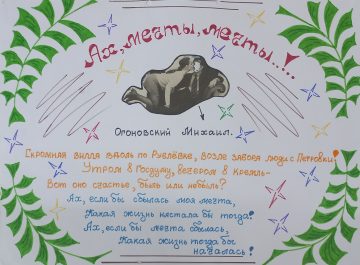 Ах, мечты, мечты....!
Ороновский Михаил.
Скромная вилла вдоль по Рублёвке, возле забора люди с Петровки!
Утром в Госдуму, вечером в Кремль-
Вот оно счастье, быль или небыль?
Ах, если бы сбылась моя мечта,
Какая жизнь настала бы тогда!
Ах, если бы мечта сбылась,
Какая жизнь тогда бы
началась!